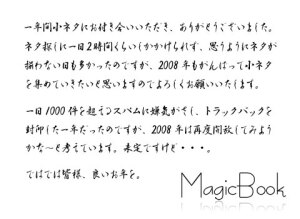 一年間小ネタにお付き合いいただき、ありがとうございました。
ネタ探しに一日2時間くらいしかかけられず、思うようにネタが
揃わない日も多かったのですが、2008年もがんばって小ネタ
を集めていきたいと思いますのでよろしくお願いいたします。
一日1000件を超えるスパムに嫌気がさし、トラックバックを
封印した一年だったのですが、2008年は再度開放してみよう
かな～と考えています。未定ですけど・・・。
ではでは皆様、良いお年を。
MagicBook